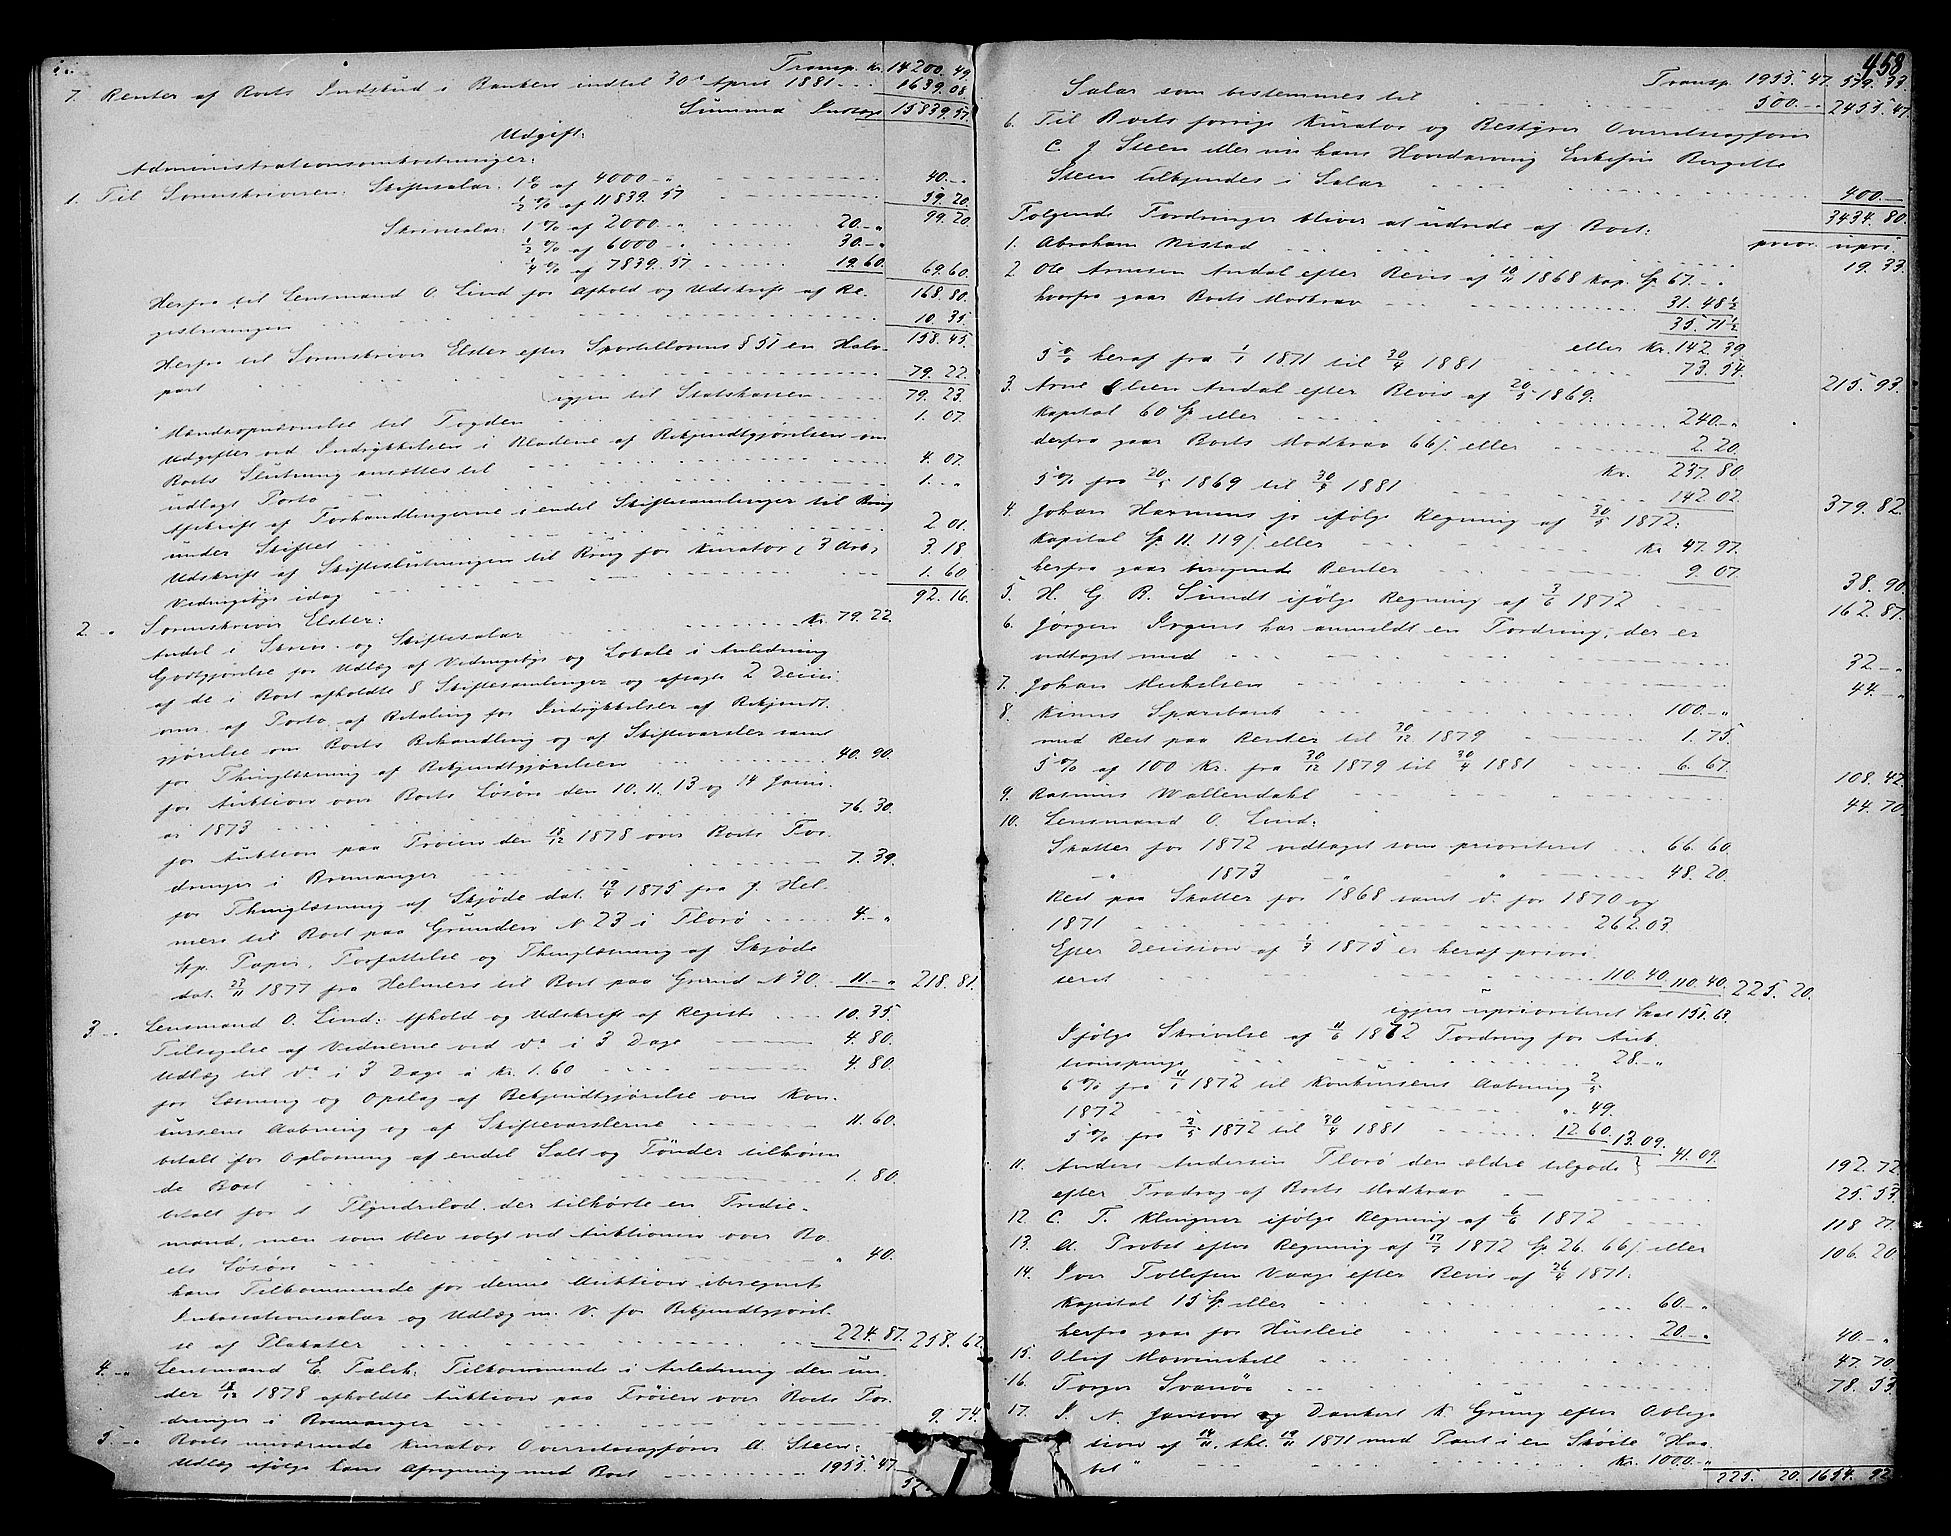 Transp. Kr. 14200. 49
7. Renter af Boets Indskud i Banken indtil 30te April 1881 - - 1639.08
Summa Indtægt 15839.57.
Udgift:
Administrationsomkostninger:
1. Til Sorenskriveren: Skiftesalær: 1 % af 4000 - „ - - - 40.- „
½ % af 11839.57 - - - 59.20.
99.20.
Skrivesalær: 1 % af 2000.- „ - - - 20.- „
½ % af 6000 - „ - - - 30.- „
¼ % af 7839.57 - - - 19.60. 69.60.
168.80.
Herfra til Lensmand O. Lind for Afhold og Udskrift af Re-
gistreringen - - - 10.35.
158.45.
Herfra til Sorenskriver Elster efter Sportellovens § 51 en Halv-
part - - - 79.22.
igjen til Statskassen - - - 79.23.
Mandsopnævnelse til Fogden - - - 1.07
Udgifter ved Indrykkelsen i Bladene af Bekjendtgjørelsen om
Boets Slutning ansættes til - - - 4.07.
udlagt Porto - - - 1.- „
Afskrift af Forhandlingerne i endel Skiftesamlinger til Brug
under Skiftet - - - 2 01.
Udskrift af Skifteslutningen til Brug for Kurator (3 Ark) 3.18.
Vidnegebyr idag - - - 1.60
92.16.
2 - „ Sorenskriver Elster:
Andel i Skrive- og Skiftesalær - - - Kr. 79.22
Godtgjørelse for Udlæg af Vidnegebyr og Lokale i Anledning
af de i Boet afholdte 8 Skiftesamlinger og afsagte 2 Decisi-
oner, af Porto, af Betaling for Indrykkelser af Bekjendt-
gjørelse om Boets Behandling og af Skiftevarsler samt
for Thinglæsning af Bekjendtgjørelsen - - - 40.90.
for Auktion over Boets Løsøre den 10. 11. 13 og 14 Janu-
ar 1873 - - - 76.30.
for Auktion paa Frøien den 18/12 1878 over Boets For-
dringer i Bremanger - - - 7.39.
for Thinglæsning af Skjøde dat. 19/4 1875 fra J. Hel-
mers til Boet paa Grunden N 23 i Florø - - - 4.- „
St. Papir, Forfattelse og Thinglæsning af Skjøde
dat. 23/11 1877 fra Helmers til Boet paa Grund N 30. 11.- „ 218.81.
3 - „ Lensmand O. Lind: Afhold og Udskrift af Registr. - - - 10.35.
Tilsigelse af Vidnerne ved do i 3 Dage - - - 4.80.
Udlæg til do i 3 Dage á Kr. 1.60 - - - 4.80.
for Læsning og Opslag af Bekjendtgjørelse om Kon-
kursens Aabning og af Skiftevarslerne - - - 11.60.
betalt for Oplosning af endel Salt og Tønder tilhøren-
de Boet - - - 1.80.
betalt for 1 Flyndrelod, der tilhørte en Tredie-
mand, men som blev solgt ved Auktionen over Bo-
ets Løsøre - - - „ 40.
hans Tilkommende for denne Auktion iberegnet
Inkassationssalær og Udlæg m. V. for Bekjendtgjørel-
se af Plakater - - - 224.87. 258.62
4. - „ Lensmand E. Falch: Tilkommende i Anledning den un-
der 18/12 1878 afholdte Auktion paa Frøien over Boets For-
dringer i Bremanger - - - 9.74.
5. - „ Boets nuværende Kurator Overretssagfører A. Steen:
Udlæg ifølge hans Afregning med Boet - - - 1955.47
458
Transp. 1955.47. 579.33.
Salær som bestemmes til - - - 500.- „ 2455.47.
6. Til Boets forrige Kurator og Bestyrer Overretssagfører
C. J. Steen eller nu hans Hovedarving Enkefru Bergitte
Steen tilkjendes i Salær - - - 400.-
3434.80.
Følgende Fordringer bliver at udrede af Boet: prior. upri.
1. Abraham Nistad - - - 19.33.
2 Ole Arnesen Andal efter Bevis af 10/11 1868 Kap. Sp. 67.- „
hvorfra gaar Boets Modkrav - - - 31.48½
35.71½
eller Kr. 142.39
5 % heraf fra 1/1 1871 til 30/4 1881 - - - 73.54. 215.93.
3. Arne Olsen Andal efter Bevis af 20/5 1869:
Kapital 60 Sp eller - - - 240.- „
derfra gaar Boets Modkrav 66 ß. eller - - - 2.20.
Kr. 237.80.
5 % fra 20/5 1869 til 30/4 1881 - - - 142.02. 379.82.
4. Johan Harmens jr ifølge Regning af 30/5 1872:
Kapital Sp. 11. 119 ß. eller - - - Kr 47.97.
herfra gaar beregnede Renter - - - 9.07. 38.90.
5. H. G. B. Sundt ifølge Regning af 3/6 1872 - - - 162.87.
6. Jørgen Irgens har anmeldt en Fordring, der er
vedtaget med - - - 32.- „
7. Johan Michelsen - - - 44.- „
8. Kinns Sparebank - - - 100.- „
med Rest paa Renter til 30/12 1879 - - - 1.75.
5 % af 100 Kr. fra 30/12 1879 til 30/4 1881 - - - 6.67. 108.42.
9. Rasmus Wallendahl - - - 44.70
10. Lensmand O. Lind:
Skatter for 1872 vedtaget som prioriteret - - - 66.60.
- „ 1873 „ „ - - - 48.20.
Rest paa Skatter for 1868 samt do for 1870 og
1871 - - - 262.03.
Efter Decision af 1/3 1875 er heraf priori-
teret - - - 110.40. 110.40. 225.20.
igjen uprioriteret Skat 151.63.
Ifølge Skrivelse af 11/6 1872 Fordring for Auk-
tionspenge - - - 28.- „
6 % fra 11/1 1872 til Konkursens Aabning 2/5
1872 - - - „.49.
5 % fra 2/5 1872 til 30/4 1881 - - - 12.60. 13.09.
41.09 192.72
11. Anders Andersen Florø den ældre tilgode
efter Fradrag af Boets Modkrav - - - 25.53.
12. C. F. Klingner ifølge Regning af 6/6 1872 - - - 118 27.
13. A. Probst efter Regning af 17/7 1872 Sp. 26. 66 ß. eller 106.20
14. Iver Tollefsen Vaage efter Bevis af 26/4 1871:
Kapital 15 Sp. eller - - - 60.- „
herfra gaar for Husleie - - - 20.- „ 40.- „
15. Oluf Mowinckell - - - 47.70
16. Torger Svanøe - - - 78.53
17. I. N. Janson og Danckert K. Grung efter Obliga-
tion af 14/11. thl. 19/11 1871 med Pant i en Skøite "Haa-
bet" - - - Kr. 1000.- „
225. 20. 1654. 92.